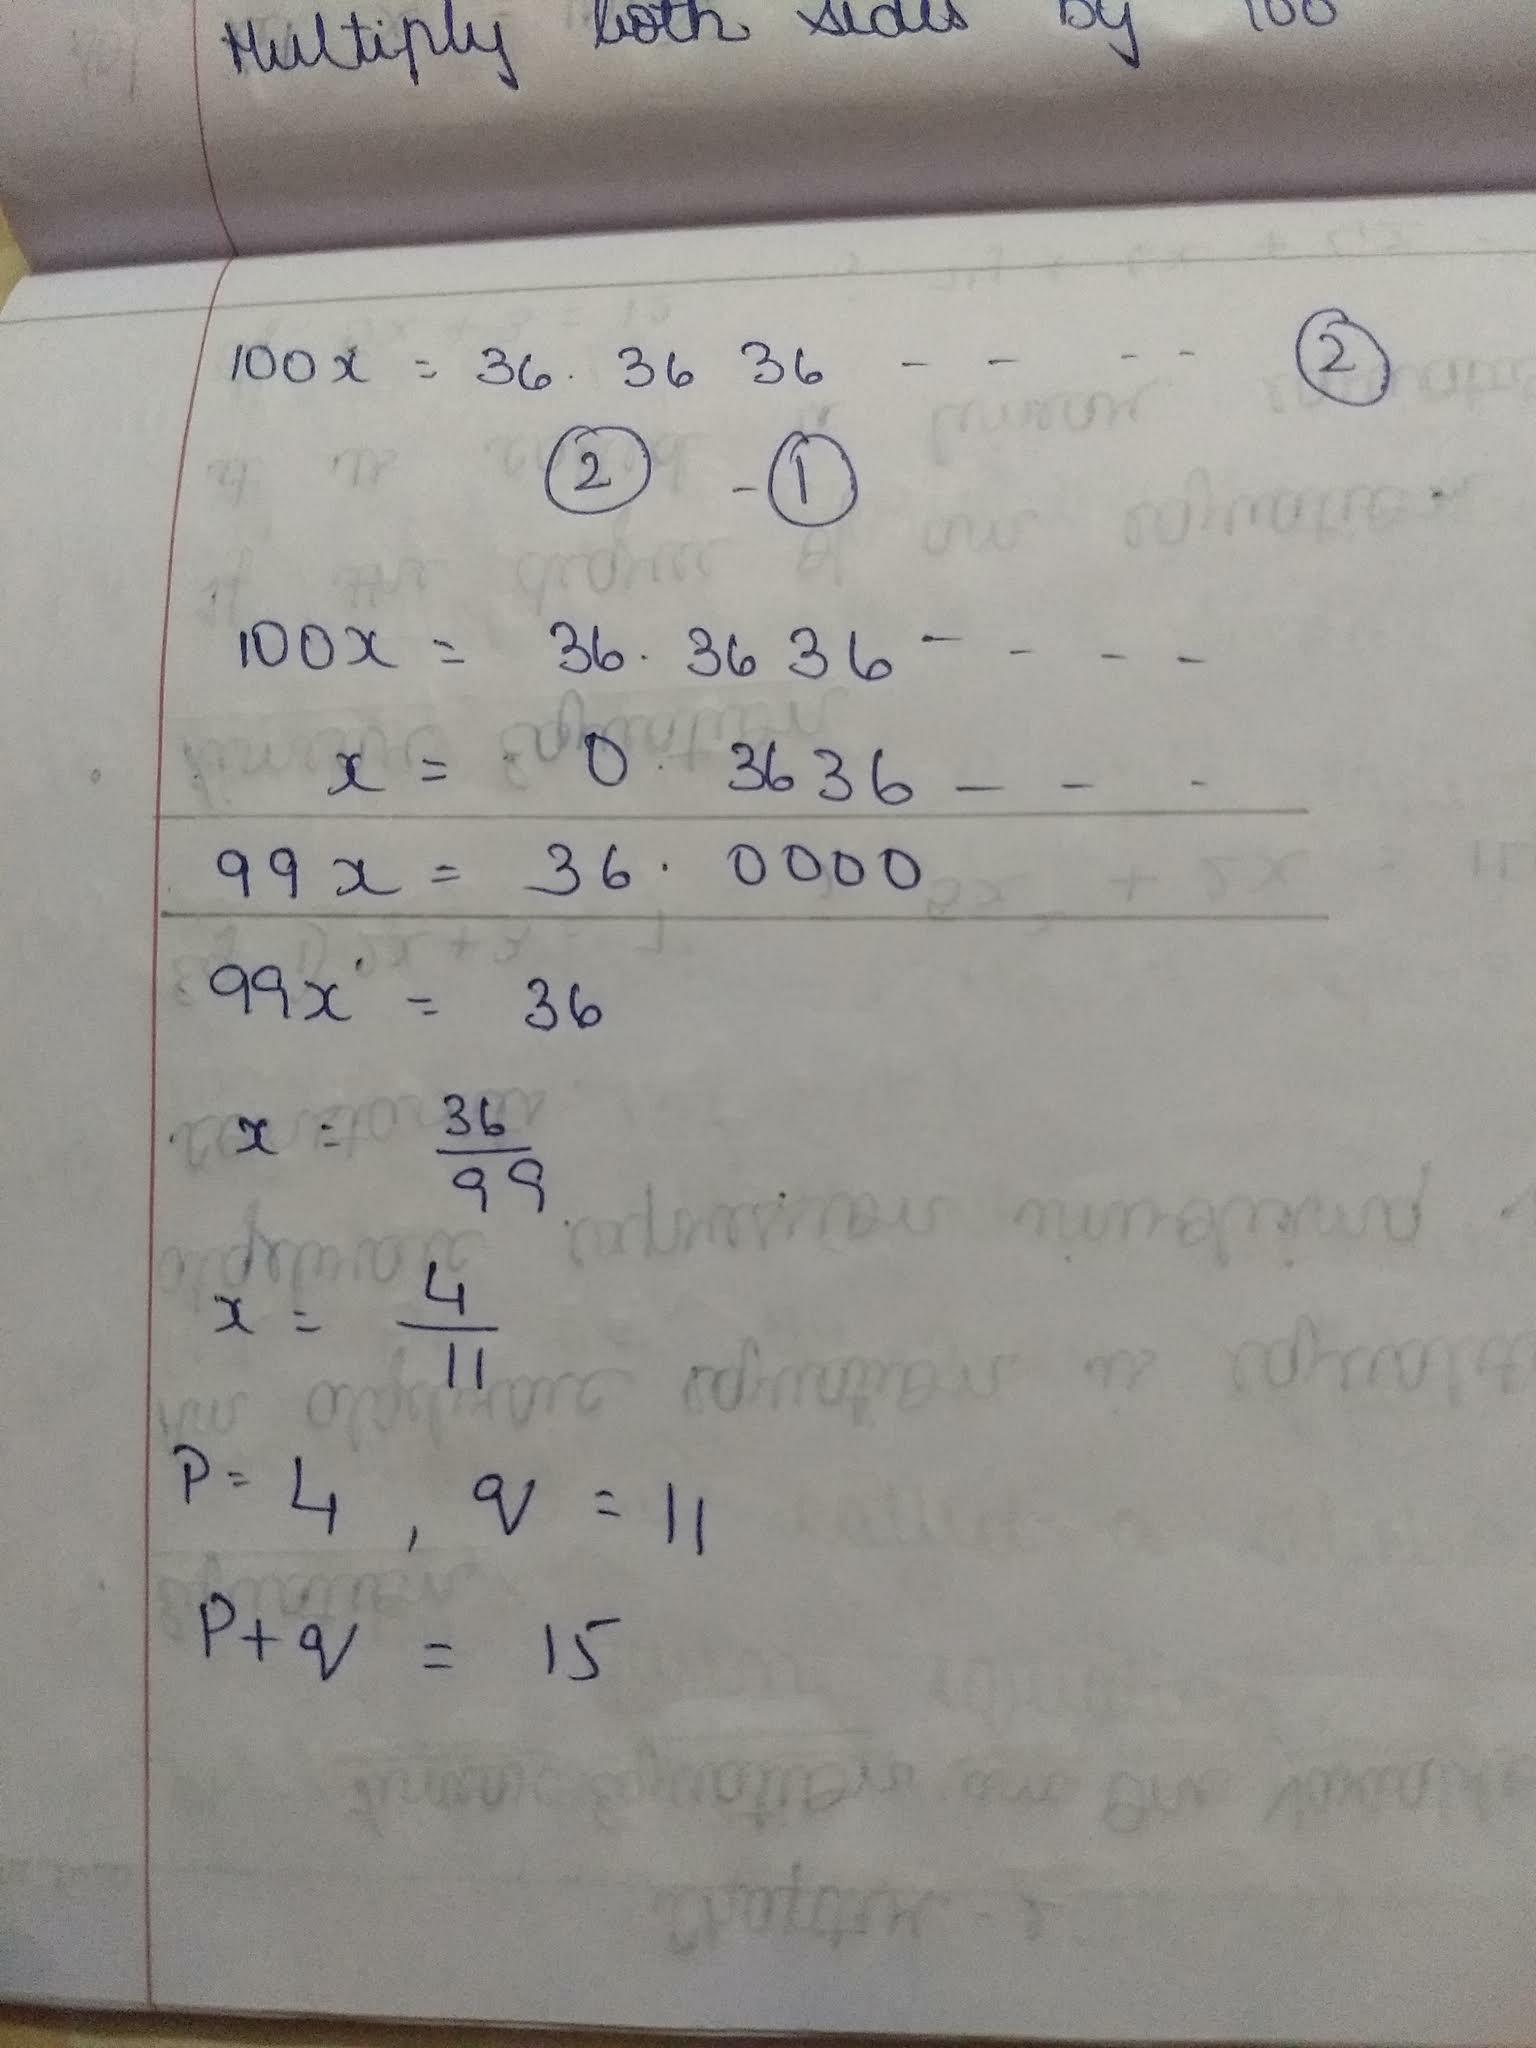 Multiply both sides by 100
100x = 36. 36 36 - - - - ②
② - ①
100x = 36. 36 36 - - - -
x = 0. 3636 - - -
99x = 36. 0000
99x = 36
x = 36/99
x = 4/11
P = 4, q = 11
P+q = 15